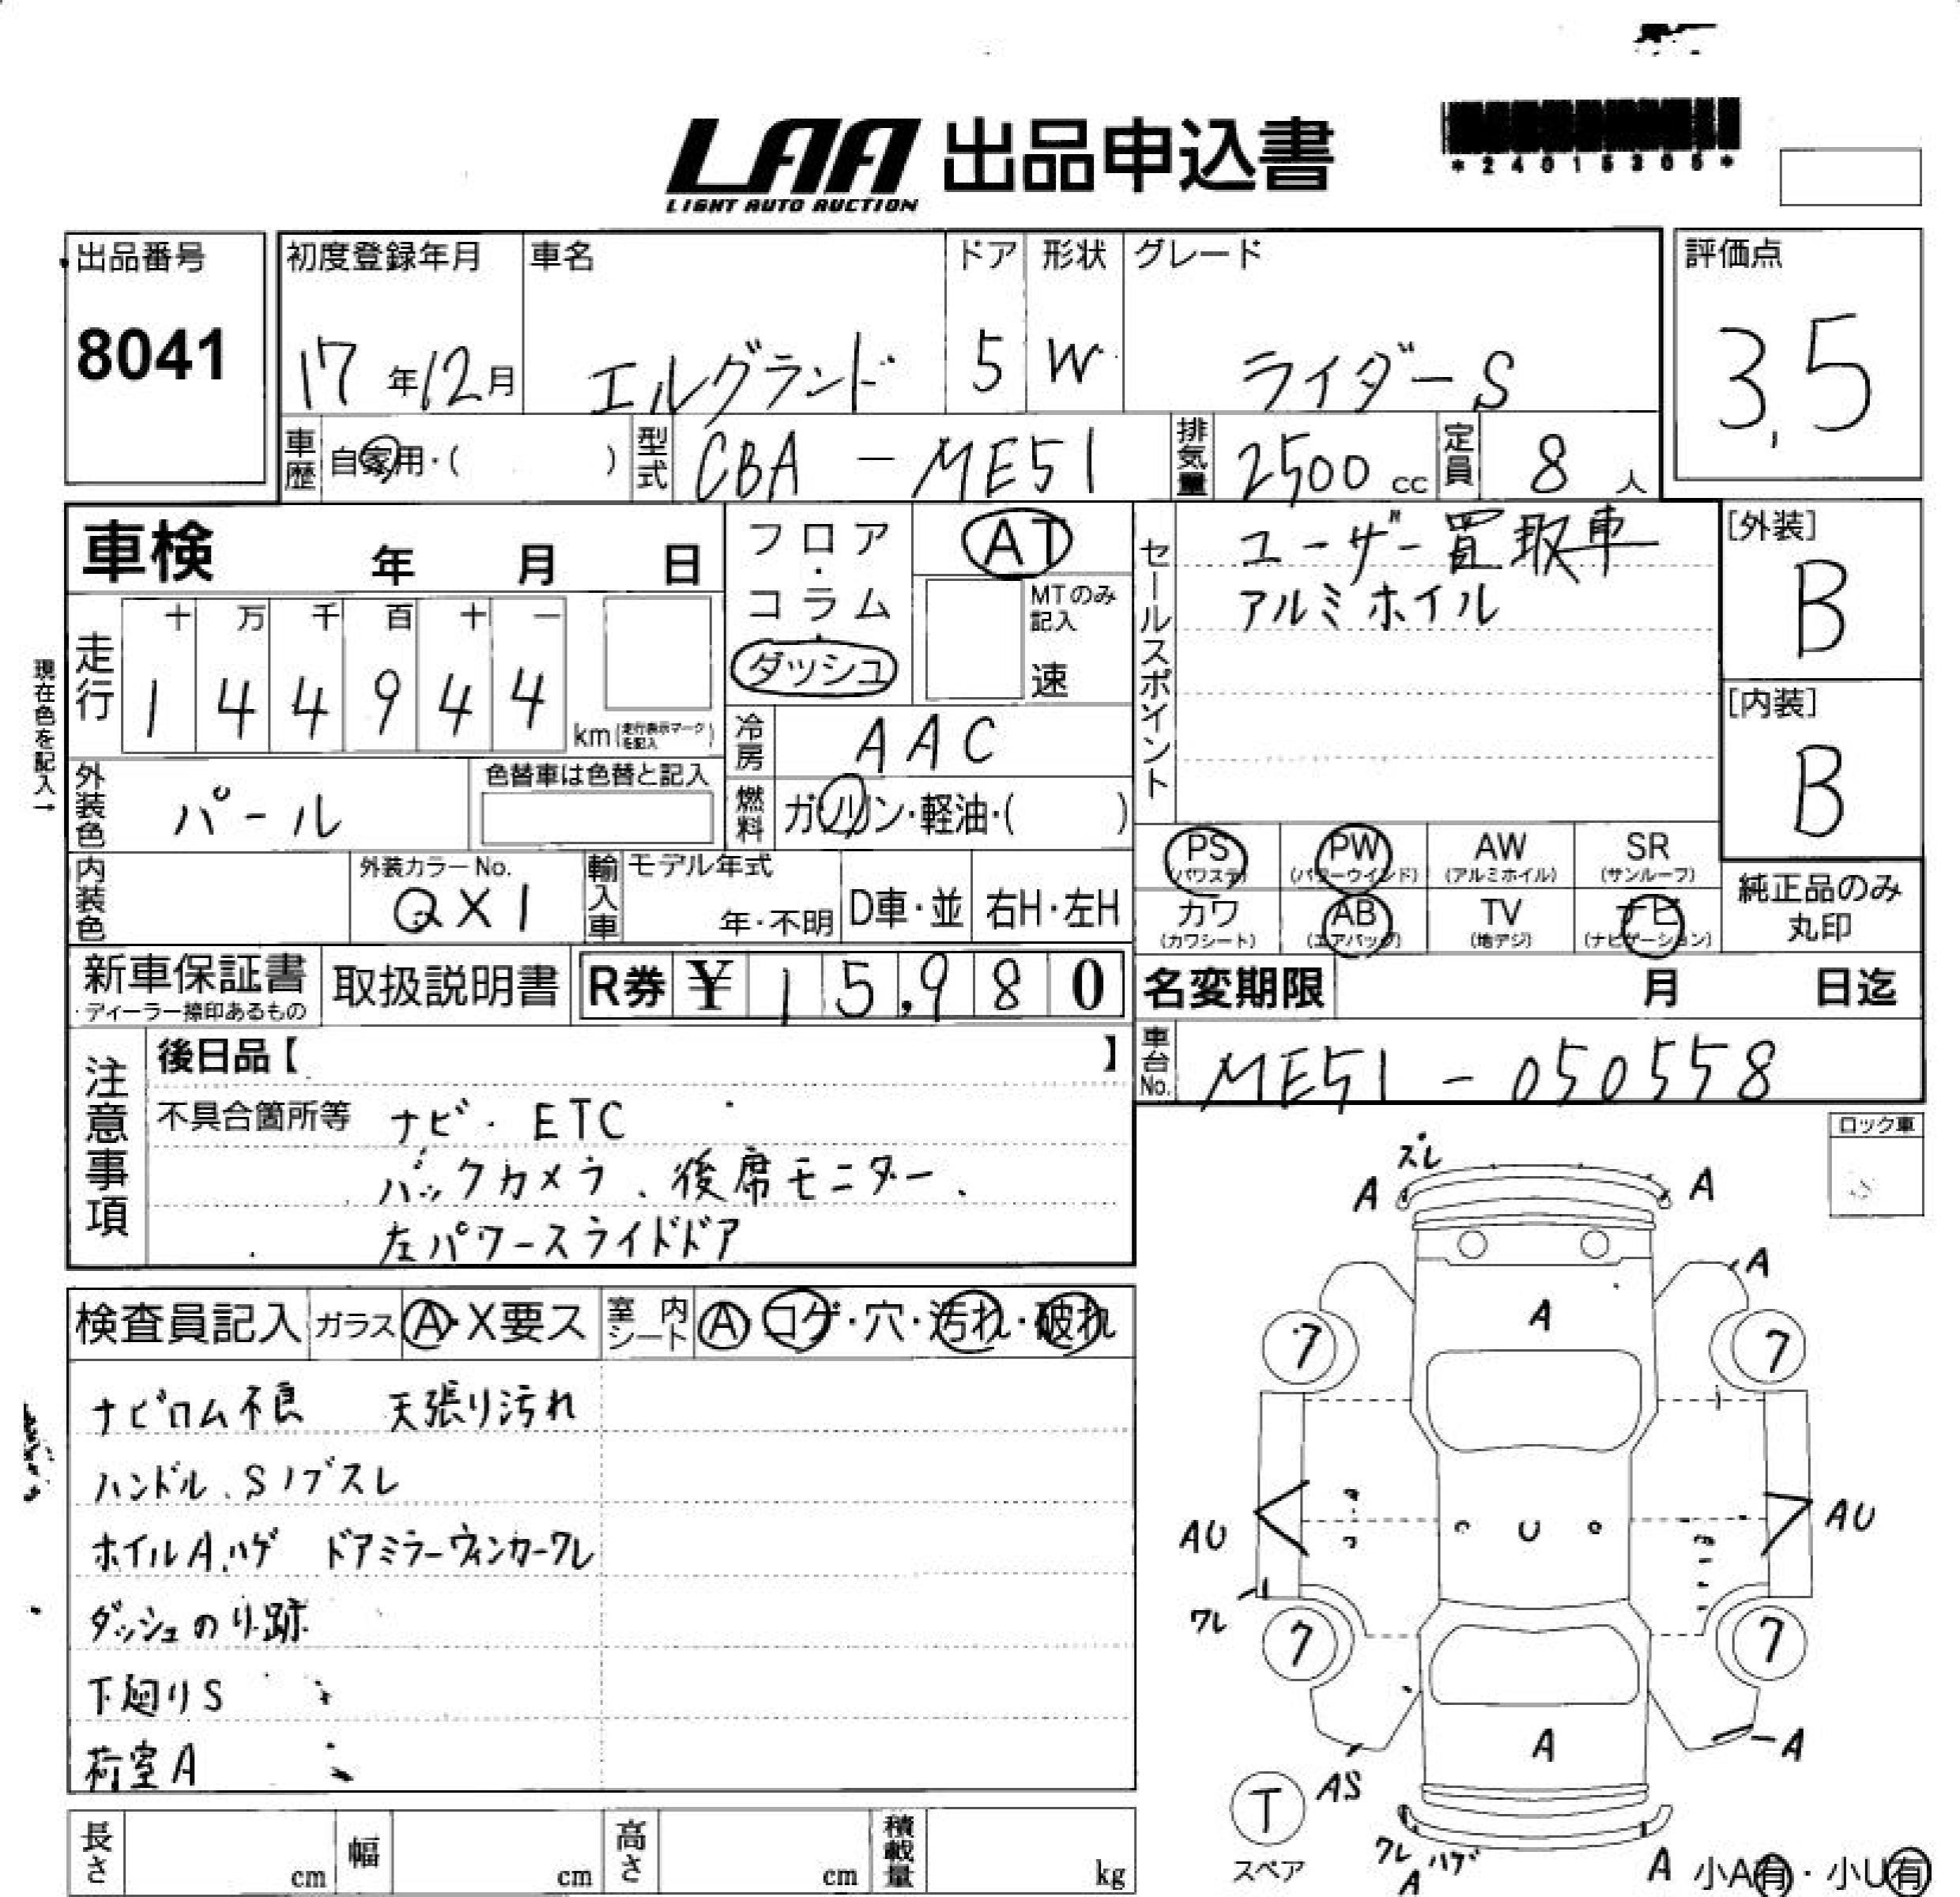 LAA 出品申込書
LIGHT AUTO AUCTION
*24015305*
出品番号
8041
初度登録年月
17年12月
車名
エルグランド
ドア
5
形状
W
グレード
ライダーS
評価点
3.5
車歴 自家用・( )
型式 CBA - ME51
排気量 2500 cc
定員 8 人
車検 年 月 日
フロア・コラム・ダッシュ
AT
MTのみ記入
速
セールスポイント
ユーザー買取車
アルミホイル
[外装]
B
[内装]
B
現在色を記入→
走行
十 万 千 百 十 一
1 4 4 9 4 4 km(走行表示マークを記入)
冷房 AAC
燃料 ガソリン・軽油・( )
外装色 パール
色替車は色替と記入
内装色
外装カラーNo.
QX1
輸入車
モデル年式
年・不明
D車・並
右H・左H
PS (パワステ)
PW (パワーウインド)
AW (アルミホイル)
SR (サンルーフ)
カワ (カワシート)
AB (エアバッグ)
TV (地デジ)
ナビ (ナビゲーション)
純正品のみ丸印
新車保証書
・ディーラー捺印あるもの
取扱説明書
R券 ¥ 15,980
名変期限 月 日迄
車台No. ME51 - 050558
注意事項
後日品【 】
不具合箇所等 ナビ・ETC
バックカメラ、後席モニター、
左パワースライドドア
ロック車
検査員記入
ガラス A・X要ス
室内シート A・コゲ・穴・汚れ・破れ
ナビロム不良 天張り汚れ
ハンドル、Sノブスレ
ホイルA、ハゲ ドアミラーウィンカーワレ
ダッシュのり跡
下廻りS
荷室A
ズレ
A A
A
A
7 7
AU U AU
ワレ
7 7
A
A
AS
T
スペア
ワレ ハゲ
A
A
小A有・小U有
長さ cm
幅 cm
高さ cm
積載量 kg